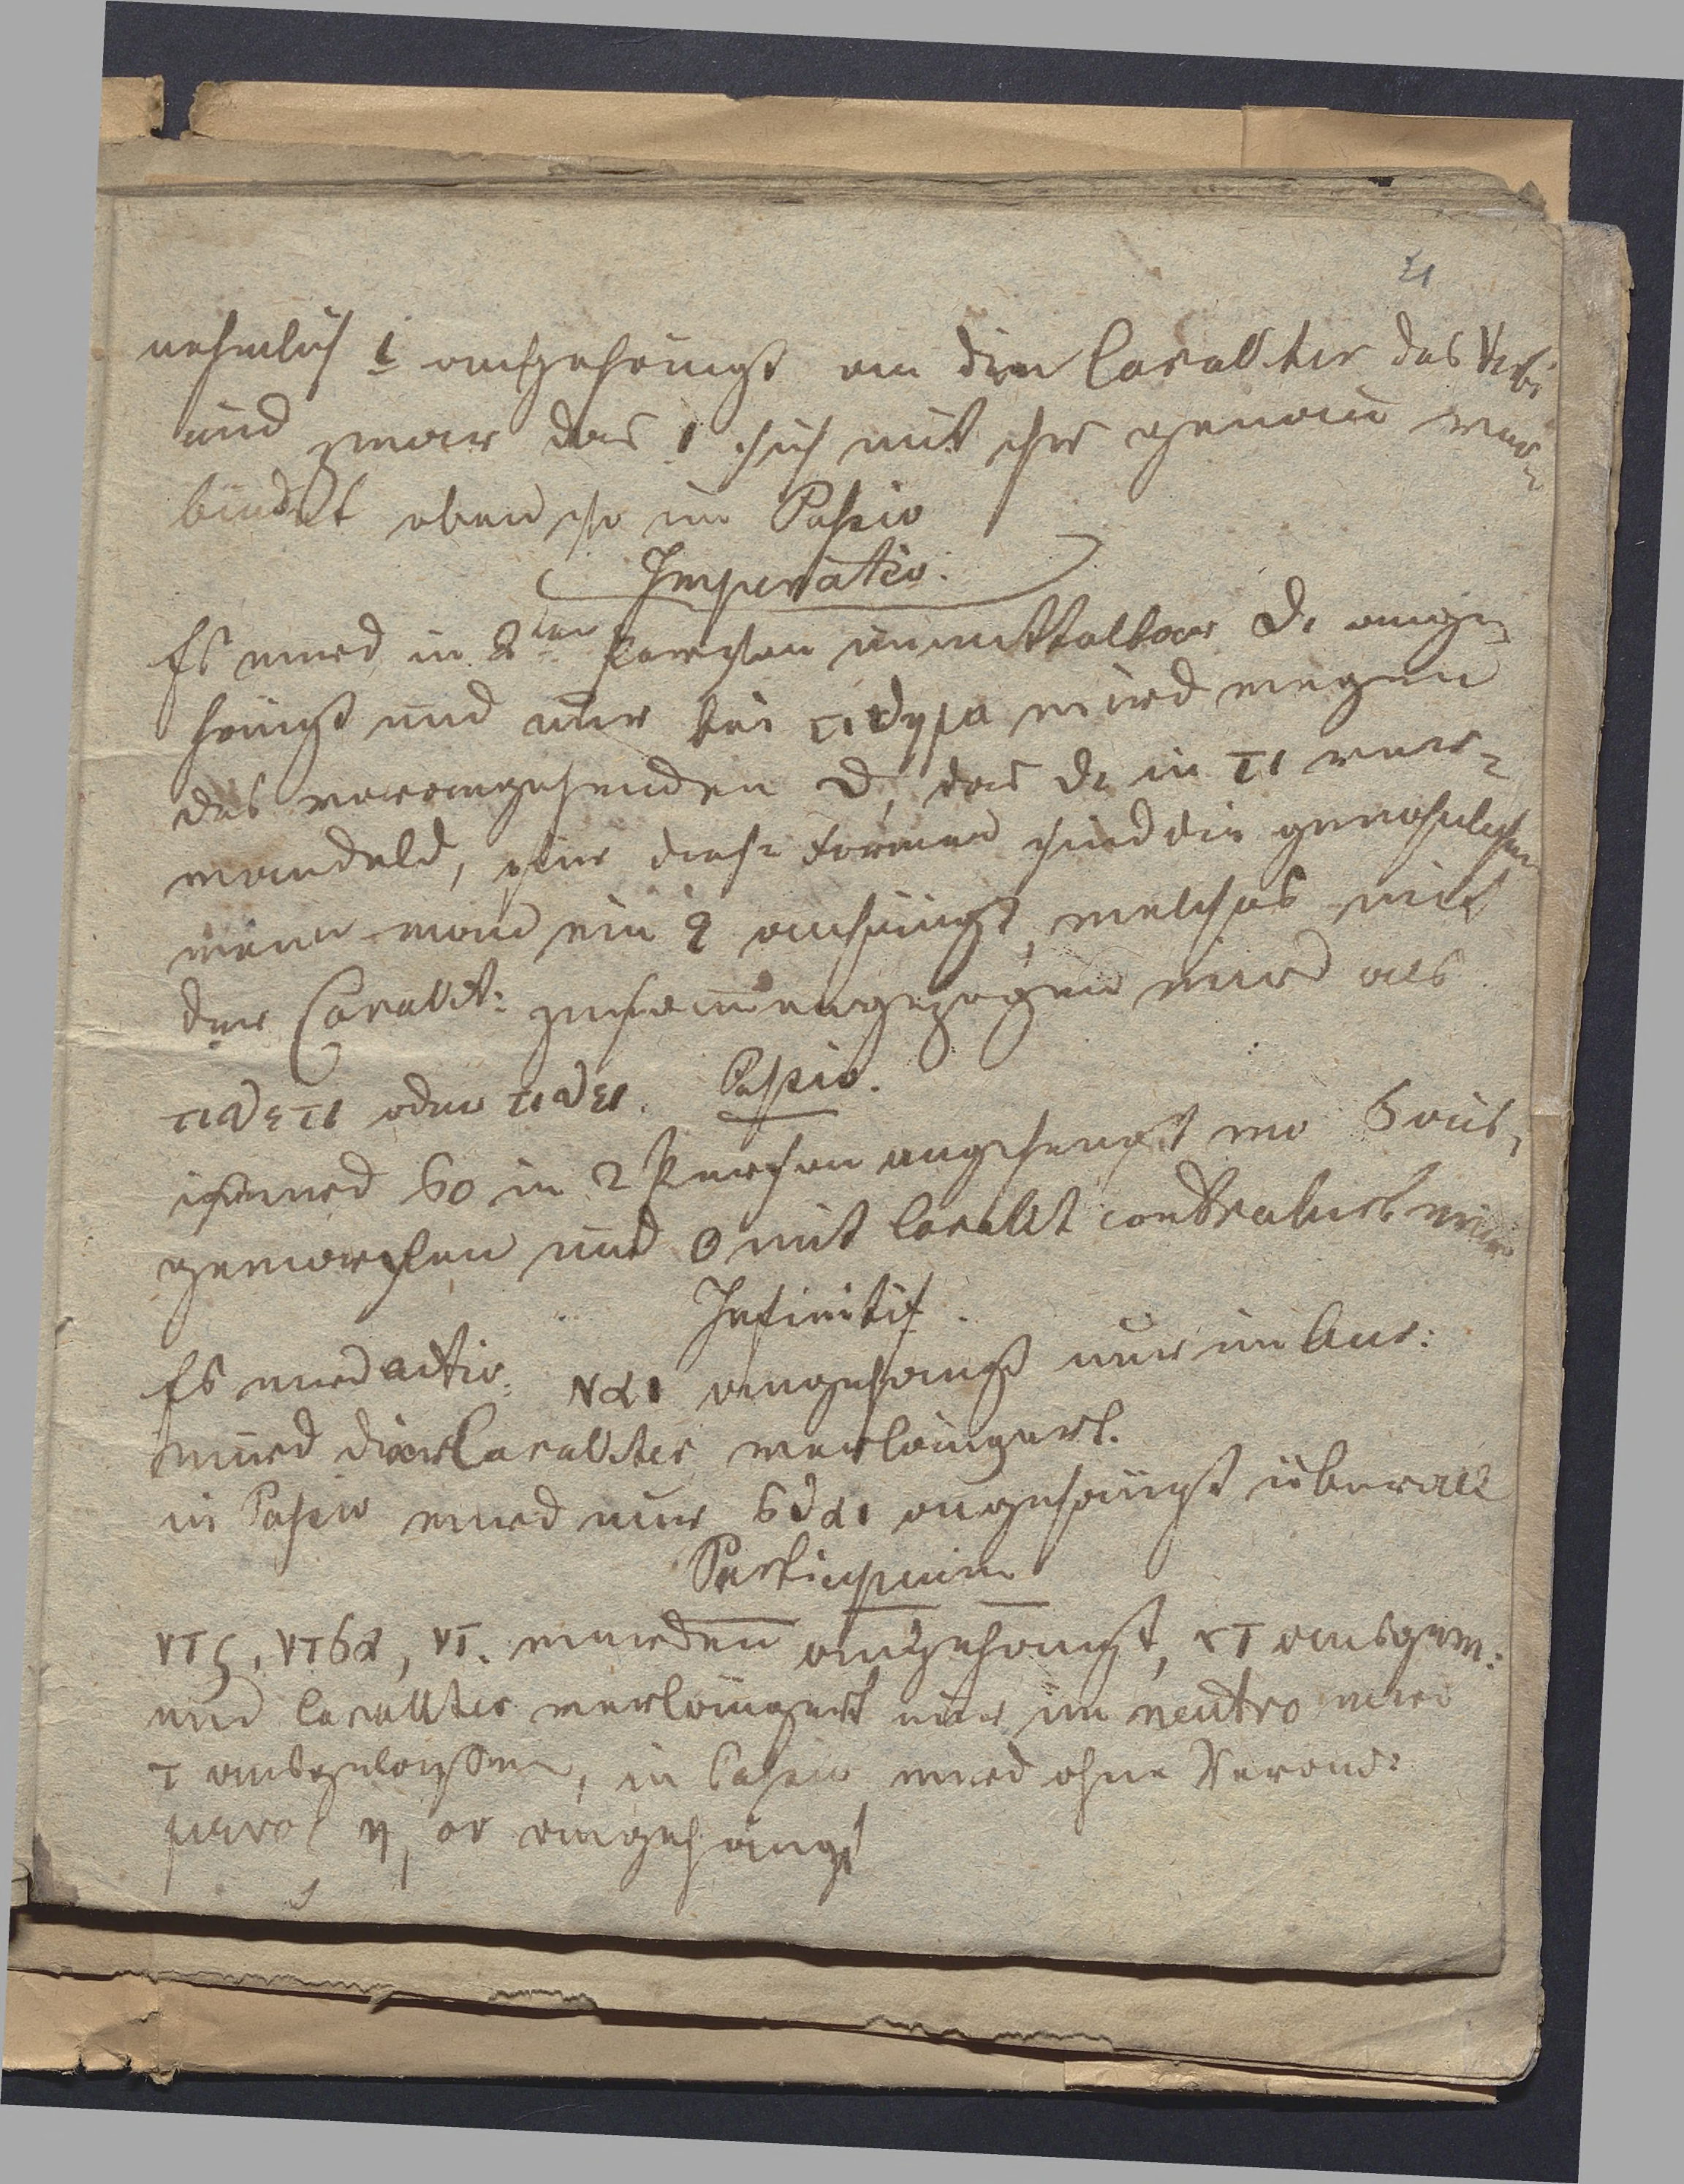 21
nehmlich ι angehängt an den Carackter des Verbi
und zwar das ι sich mit ihr genau ver=
bindet eben so im Passiv
Imperativ.
Es wird in 2ten Person unmittelbar θι ange=
hängt und nur bei τιθημι wird wegen
des vorangehenden θ, das θι in τι ver=
wandeld, für diese Formen sind die gewohnlichen
wenn man ein ε anhängt, welches mit
der Caract: zusammengezogen wird als
τιθετι oder τιθει. Passiv.
wird σο in 2 Person angehengt wo σ aus=
geworfen und ο mit Caract contrahirt wird
Infinitif.
Es wird activ: ναι angehängt nur im Aor:
wird der Carackter verlängert.
in Passiv wird nur σθαι angehängt überall
Participium
ντς, ντσα, ντ. werden angehängt, ντ ausgew:
und Carackter verlängert nur im neutro wird
τ ausgelassen, in Passiv wird ohne Veränd:
μενος η, ον angehängt